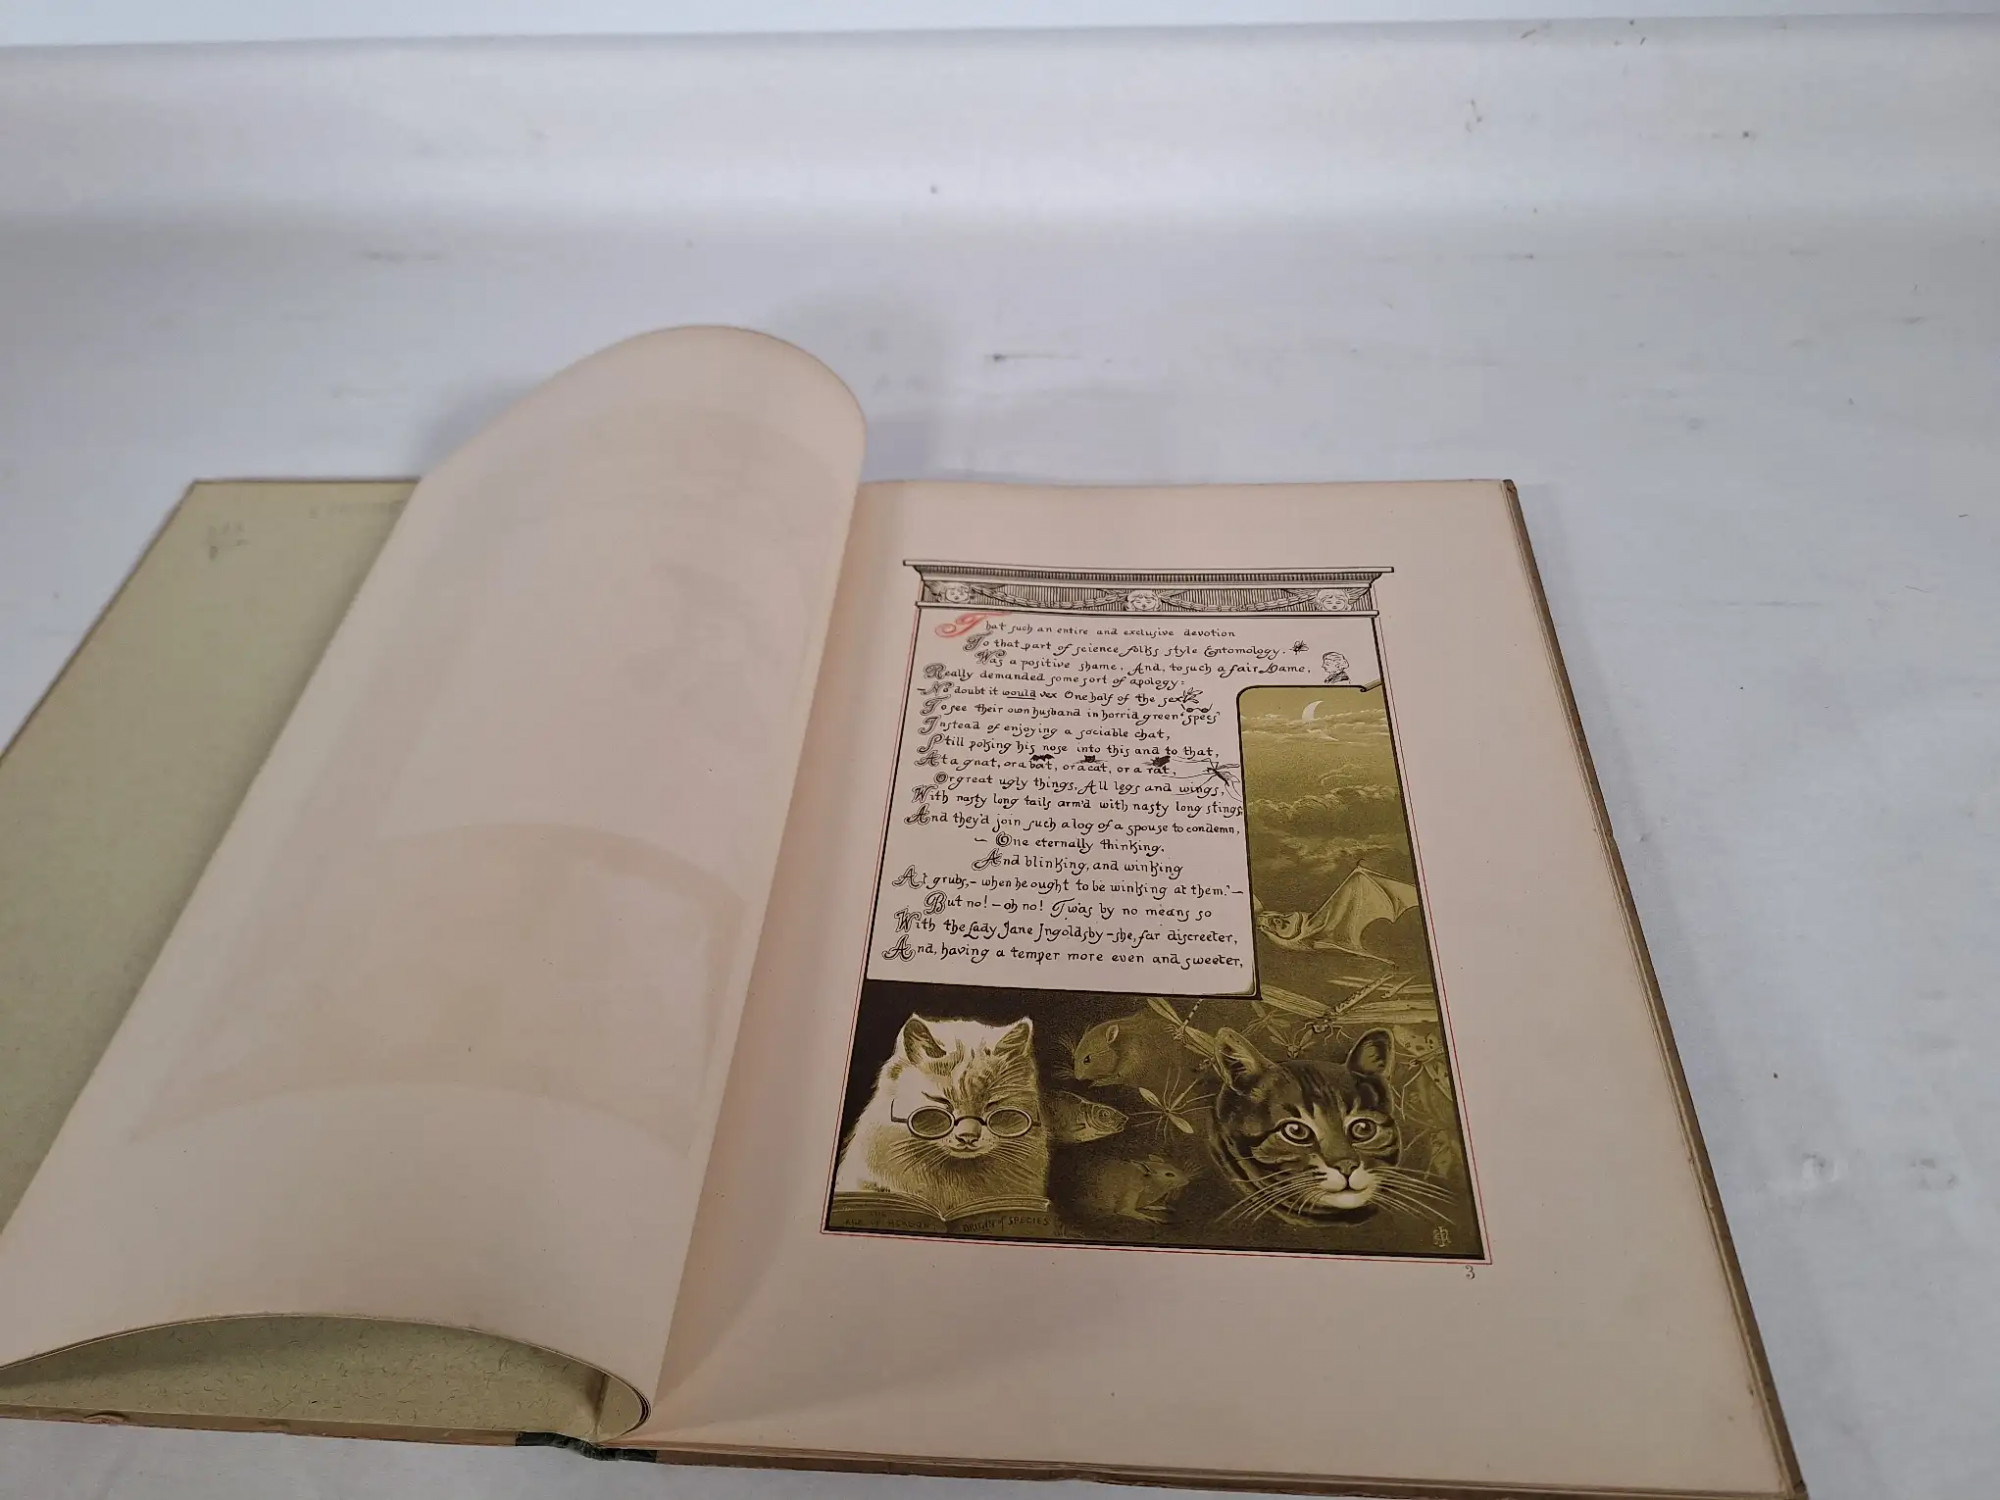 That such an entire and exclusive devotion
To that part of science folks style Entomology.
Was a positive shame, And, to such a fair Dame,
Really demanded some sort of apology:
– No doubt it would vex One half of the sex
To see their own husband in horrid green "specs"
Instead of enjoying a sociable chat,
Still poking his nose into this and to that,
At a gnat, or a bat, or a cat, or a rat,
Or great ugly things, All legs and wings,
With nasty long tails arm'd with nasty long stings
And they'd join such a log of a spouse to condemn,
– One eternally thinking,
And blinking, and winking
At grubs, – when he ought to be winking at them." –
But no! – oh no! 'Twas by no means so
With the Lady Jane Ingoldsby – she, far discreeter,
And, having a temper more even and sweeter,
ORIGIN of SPECIES
3